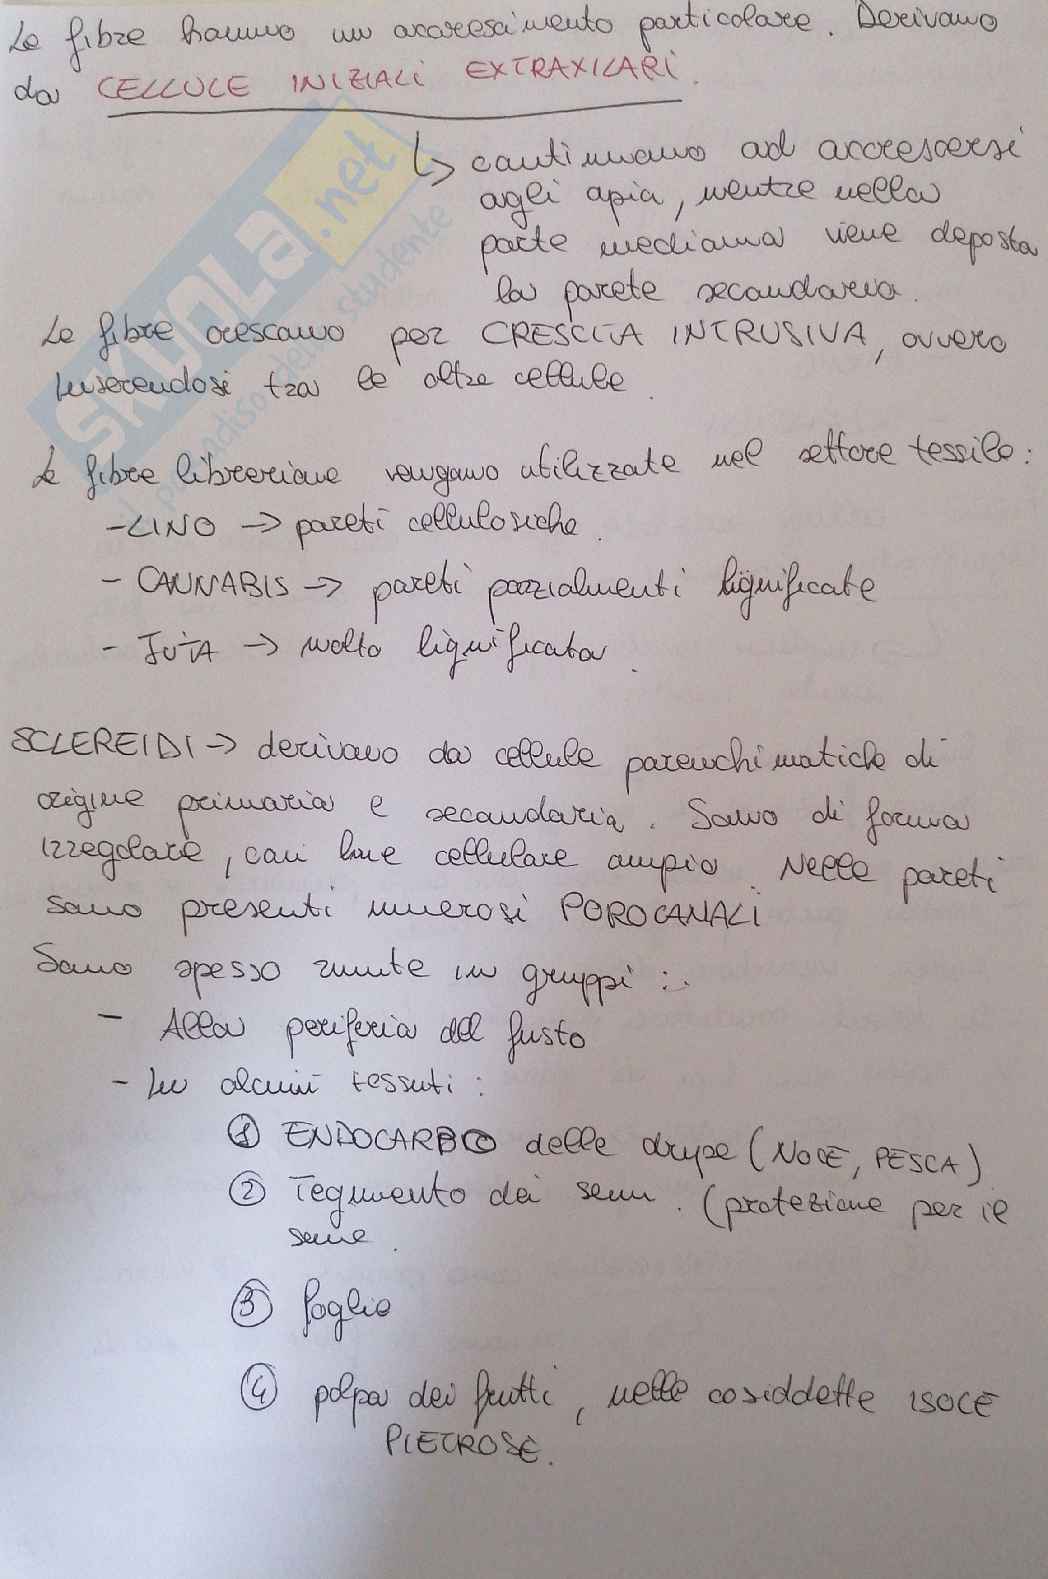 Le fibre hanno un accrescimento particolare. Derivano
da CELLULE INIZIALI EXTRAXILARI.
↳ continuano ad accrescersi
agli apici, mentre nella
parte mediana viene deposta
la parete secondaria.
Le fibre crescono per CRESCITA INTRUSIVA, ovvero
inserendosi tra le altre cellule.
Le fibre libreriane vengono utilizzate nel settore tessile:
- LINO → pareti cellulosiche.
- CANNABIS → pareti parzialmenti lignificate
- JUTA → molto lignificata.
SCLEREIDI → derivano da cellule parenchimatiche di
origine primaria e secondaria. Sono di forma
irregolare, con lume cellulare ampio. Nelle pareti
sono presenti numerosi POROCANALI
Sono spesso riunite in gruppi:
- Alla periferia del fusto
- In alcuni tessuti:
① ENDOCARPO delle drupe (NOCE, PESCA)
② Tegumento dei semi. (protezione per il
seme.
③ foglie
④ polpa dei frutti, nelle cosiddette ISOLE
PIETROSE.
SKUOLA.net
il paradiso dello studente